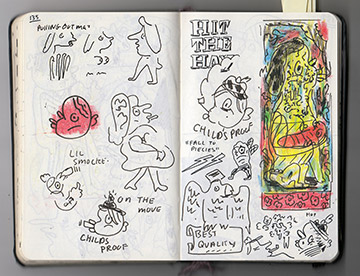 135
PULLING OUT ME?
LIL
SMOKE.
ON THE
MOVE
CHILDS
PROOF
HIT
THE
HAY
CHILDS PROOF
"FALL TO
PIECES"
BEST
QUALITY